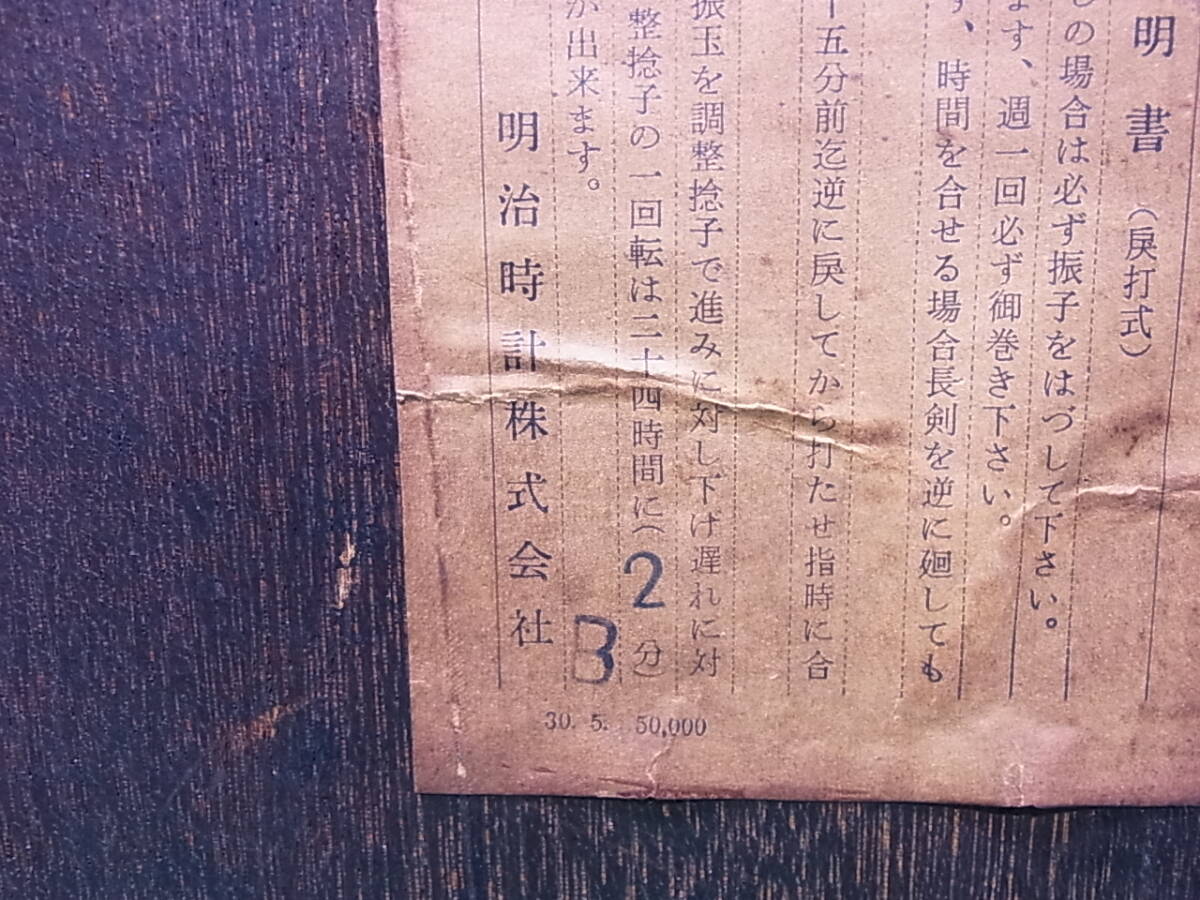 明書（戻打式）
しの場合は必ず振子をはづして下さい。
ます、週一回必ず御巻き下さい。
す、時間を合せる場合長剣を逆に廻しても
十五分前迄逆に戻してから打たせ指時に合
振玉を調整捻子で進みに対し下げ遅れに対
整捻子の一回転は二十四時間に（2分）
が出来ます。
3
明治時計株式会社
30. 5. 50,000